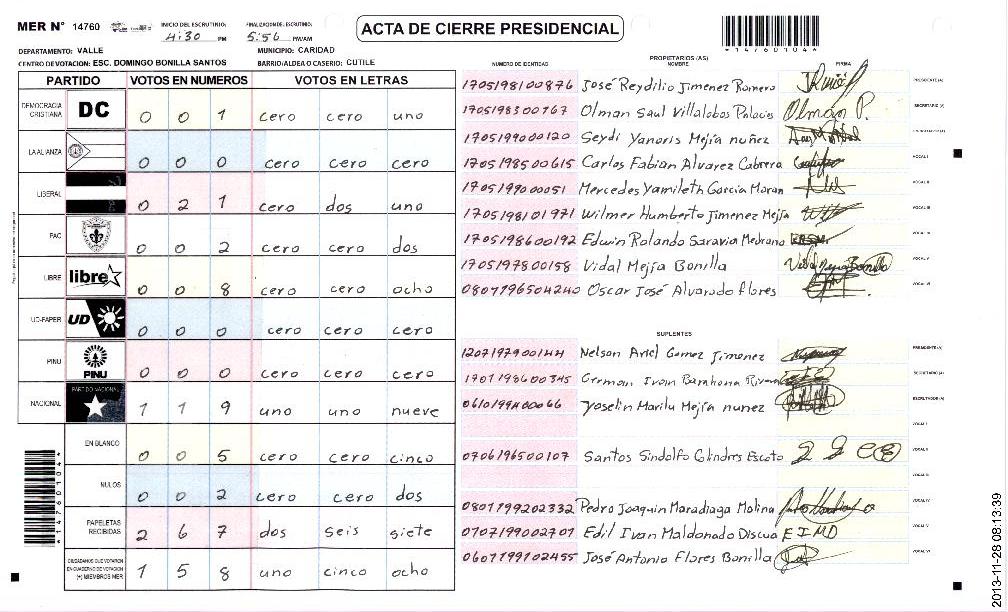 MER N° 14760
INICIO DEL ESCRUTINIO: 4:30 PM
FINALIZACION DEL ESCRUTINIO: 5:56 PM/AM
ACTA DE CIERRE PRESIDENCIAL
*14760104*
DEPARTAMENTO: VALLE
MUNICIPIO: CARIDAD
CENTRO DE VOTACION: ESC. DOMINGO BONILLA SANTOS
BARRIO/ALDEA O CASERIO: CUTILE
PARTIDO VOTOS EN NUMEROS VOTOS EN LETRAS
DEMOCRACIA CRISTIANA DC 0 0 1 cero cero uno
LA ALIANZA 0 0 0 cero cero cero
LIBERAL 0 2 1 cero dos uno
PAC 0 0 2 cero cero dos
LIBRE libre 0 0 8 cero cero ocho
UD-FAPER UD 0 0 0 cero cero cero
PINU PINU 0 0 0 cero cero cero
NACIONAL PARTIDO NACIONAL 1 1 9 uno uno nueve
EN BLANCO 0 0 5 cero cero cinco
NULOS 0 0 2 cero cero dos
PAPELETAS RECIBIDAS 2 6 7 dos seis siete
CIUDADANOS QUE VOTARON EN CUADERNO DE VOTACION (+) MIEMBROS MER 1 5 8 uno cinco ocho
PROPIETARIOS (AS)
NUMERO DE IDENTIDAD NOMBRE FIRMA
1705198100876 José Reydilio Jimenez Romero PRESIDENTE(A)
1705198300767 Olman Saul Villalobos Palacios Olman P. SECRETARIO (A)
1705199000120 Seydi Yanoris Mejía nuñez
1705198500615 Carlos Fabian Alvarez Cabrera VOCAL I
1705199000051 Mercedes Yamileth Garcia Moran VOCAL II
1705198101971 Wilmer Humberto Jimenez Mejía VOCAL III
1705198600192 Edwin Rolando Saravia Medrano VOCAL IV
1705197800158 Vidal Mejía Bonilla Vidal Mejia Bonilla VOCAL V
0807796504240 Oscar José Alvarado flores VOCAL VI
SUPLENTES
1207197900144 Nelson Ariel Gomez Jimenez PRESIDENTE(A)
1701198600345 German Ivan Barahona Rivera SECRETARIO (A)
0610199400066 Yoselin Marilu Mejía nunez ESCRUTADOR (A)
VOCAL I
0706196500107 Santos Sindolfo Colindres Escoto VOCAL II
VOCAL III
0801799202332 Pedro Joaquin Maradiaga Molina VOCAL IV
0707199002707 Edil Ivan Maldonado Discua E I M D VOCAL V
0607799102455 José Antonio Flores Bonilla VOCAL VI
*14760104*
2013-11-28 08:13:39